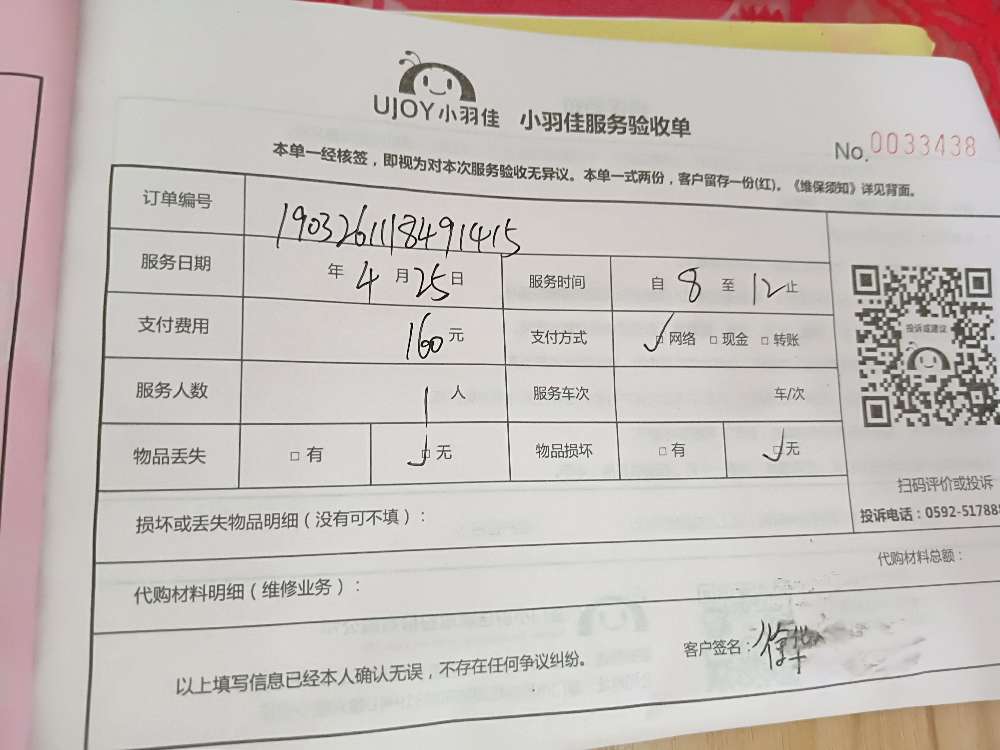 UJOY小羽佳 小羽佳服务验收单
No. 0033438
本单一经核签，即视为对本次服务验收无异议。本单一式两份，客户留存一份(红)。《维保须知》详见背面。
订单编号 1903261118491415
服务日期 年 4 月 25 日 服务时间 自 8 至 12 止
支付费用 160 元 支付方式 ☑ 网络 □ 现金 □ 转账
投诉或建议
服务人数 1 人 服务车次 车/次
物品丢失 □ 有 ☑ 无 物品损坏 □ 有 ☑ 无
扫码评价或投诉
投诉电话：0592-51788
损坏或丢失物品明细（没有可不填）：
代购材料总额：
代购材料明细（维修业务）：
客户签名：
以上填写信息已经本人确认无误，不存在任何争议纠纷。